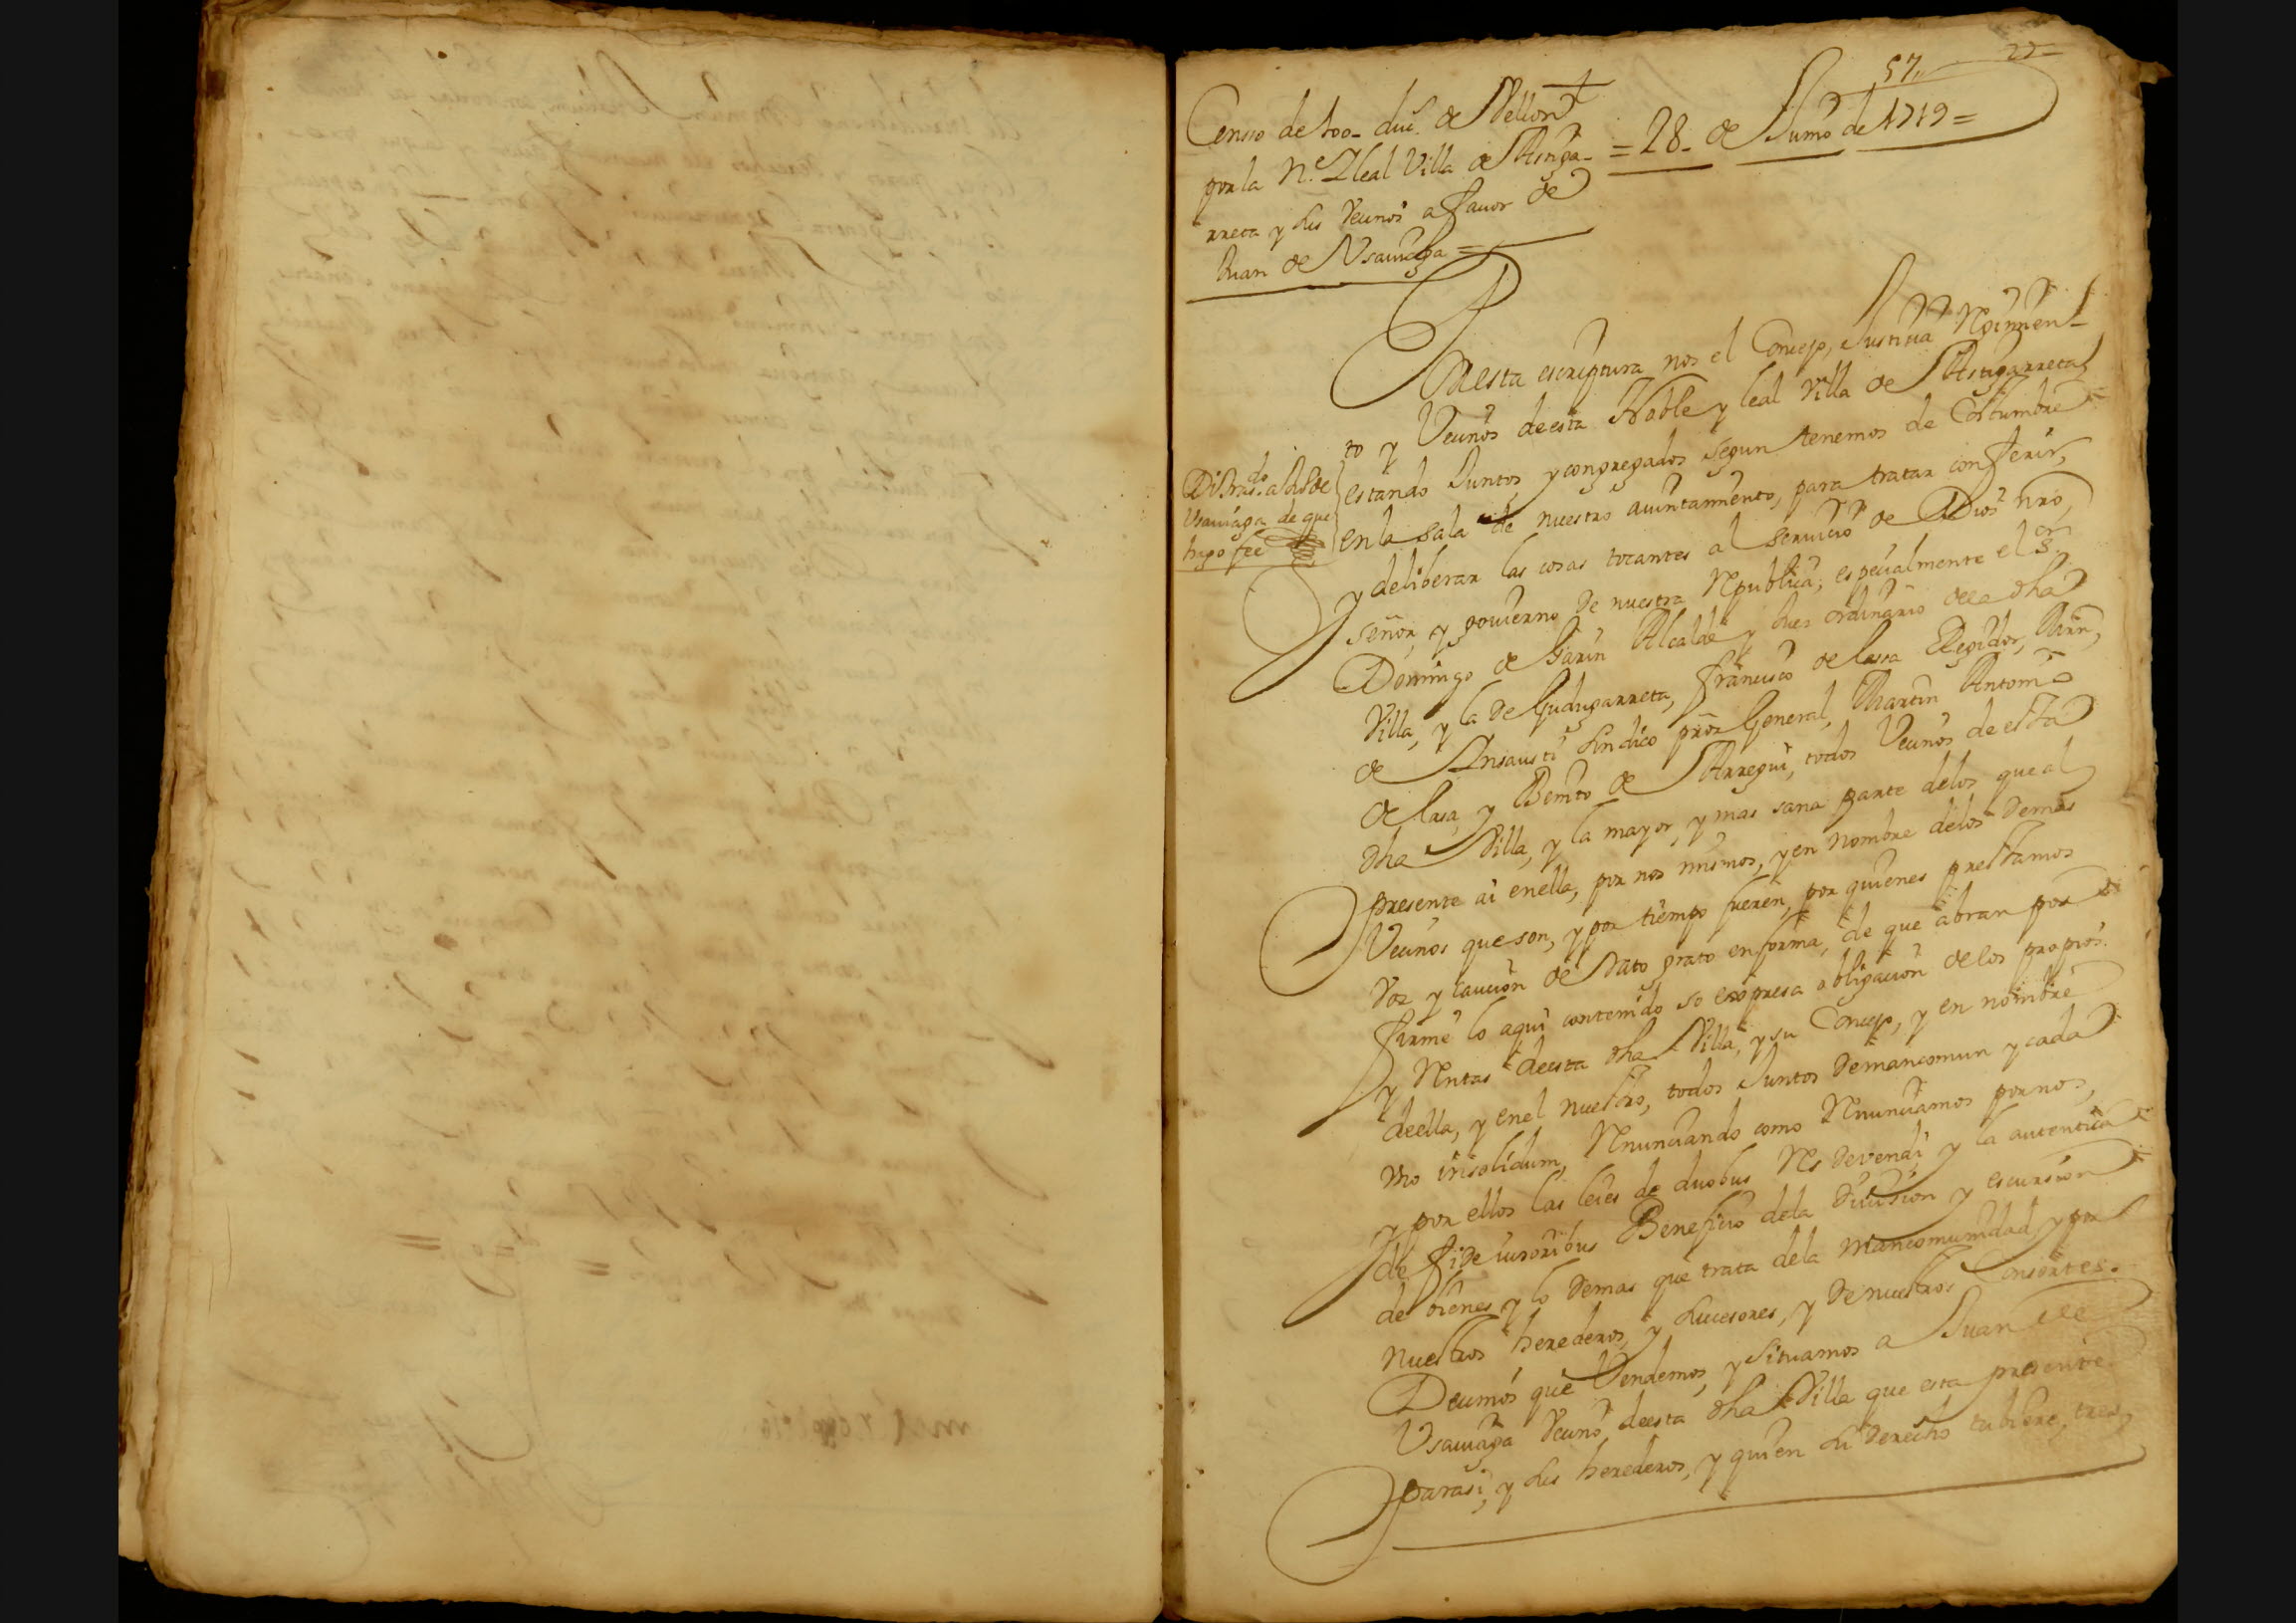 57,, 22
Censo de 100_ duc.s de Vellon
por la N.e Lleal Villa de Astiga-
rreta y sus Vecinos a favor de
Juan de Vsauiaga =
= 28_ de Junio de 1719 =
Por esta escriptura nos el Concejo, Justicia Rejimien-
to y Vecinos de esta Noble y leal Villa de Astigarreta
estando Juntos y congregados segun tenemos de Costumbre
en la sala de nuestro aiuntamiento, para tratar conferir,
y deliberar las cosas tocantes al seruicio de Dios nro,
señor, y gouierno de nuestra Republica; especialmente el s.or
Domingo de Garin Alcalde y Juez ordinario de la dha
Villa, y la de Gudugarreta, francisco de lassa Regidor,
de Insausti sindico pror General, Martin Antonio
de lasa, y Benito de Arregui, todos Vecinos de esta
dha Villa, y la mayor, y mas sana parte delos que al
presente ai enella, por nos mismos, y en nombre delos demas
Vecinos que son, y por tiempo fueren, por quienes prestamos
voz y caucion de Rato grato en forma, de que abran por
firme lo aqui contenido so expresa obligacion de los propios
y Rentas de esta dha Villa, y su Concejo, y en nombre
de ella, y enel nuestro, todos Juntos de mancomun y cada
vno insolidum, Renunciando como Renunciamos por nos,
y por ellos las leies de duobus Rs devendi y la autentica
de fide iusoribus Beneficio dela diuision y escursion
de bienes y lo demas que trata dela mancomunidad y por
nuestros herederos, y sucesores, y de nuestros Consortes.
Decimos que Vendemos, y situamos a Juan de
Vsauiaga Vecino de esta dha Villa que esta presente
para si, y sus herederos, y quien su derecho tubiere, tres
Di tras.do a Ju.o de
Vsauiaga de que
hago fee